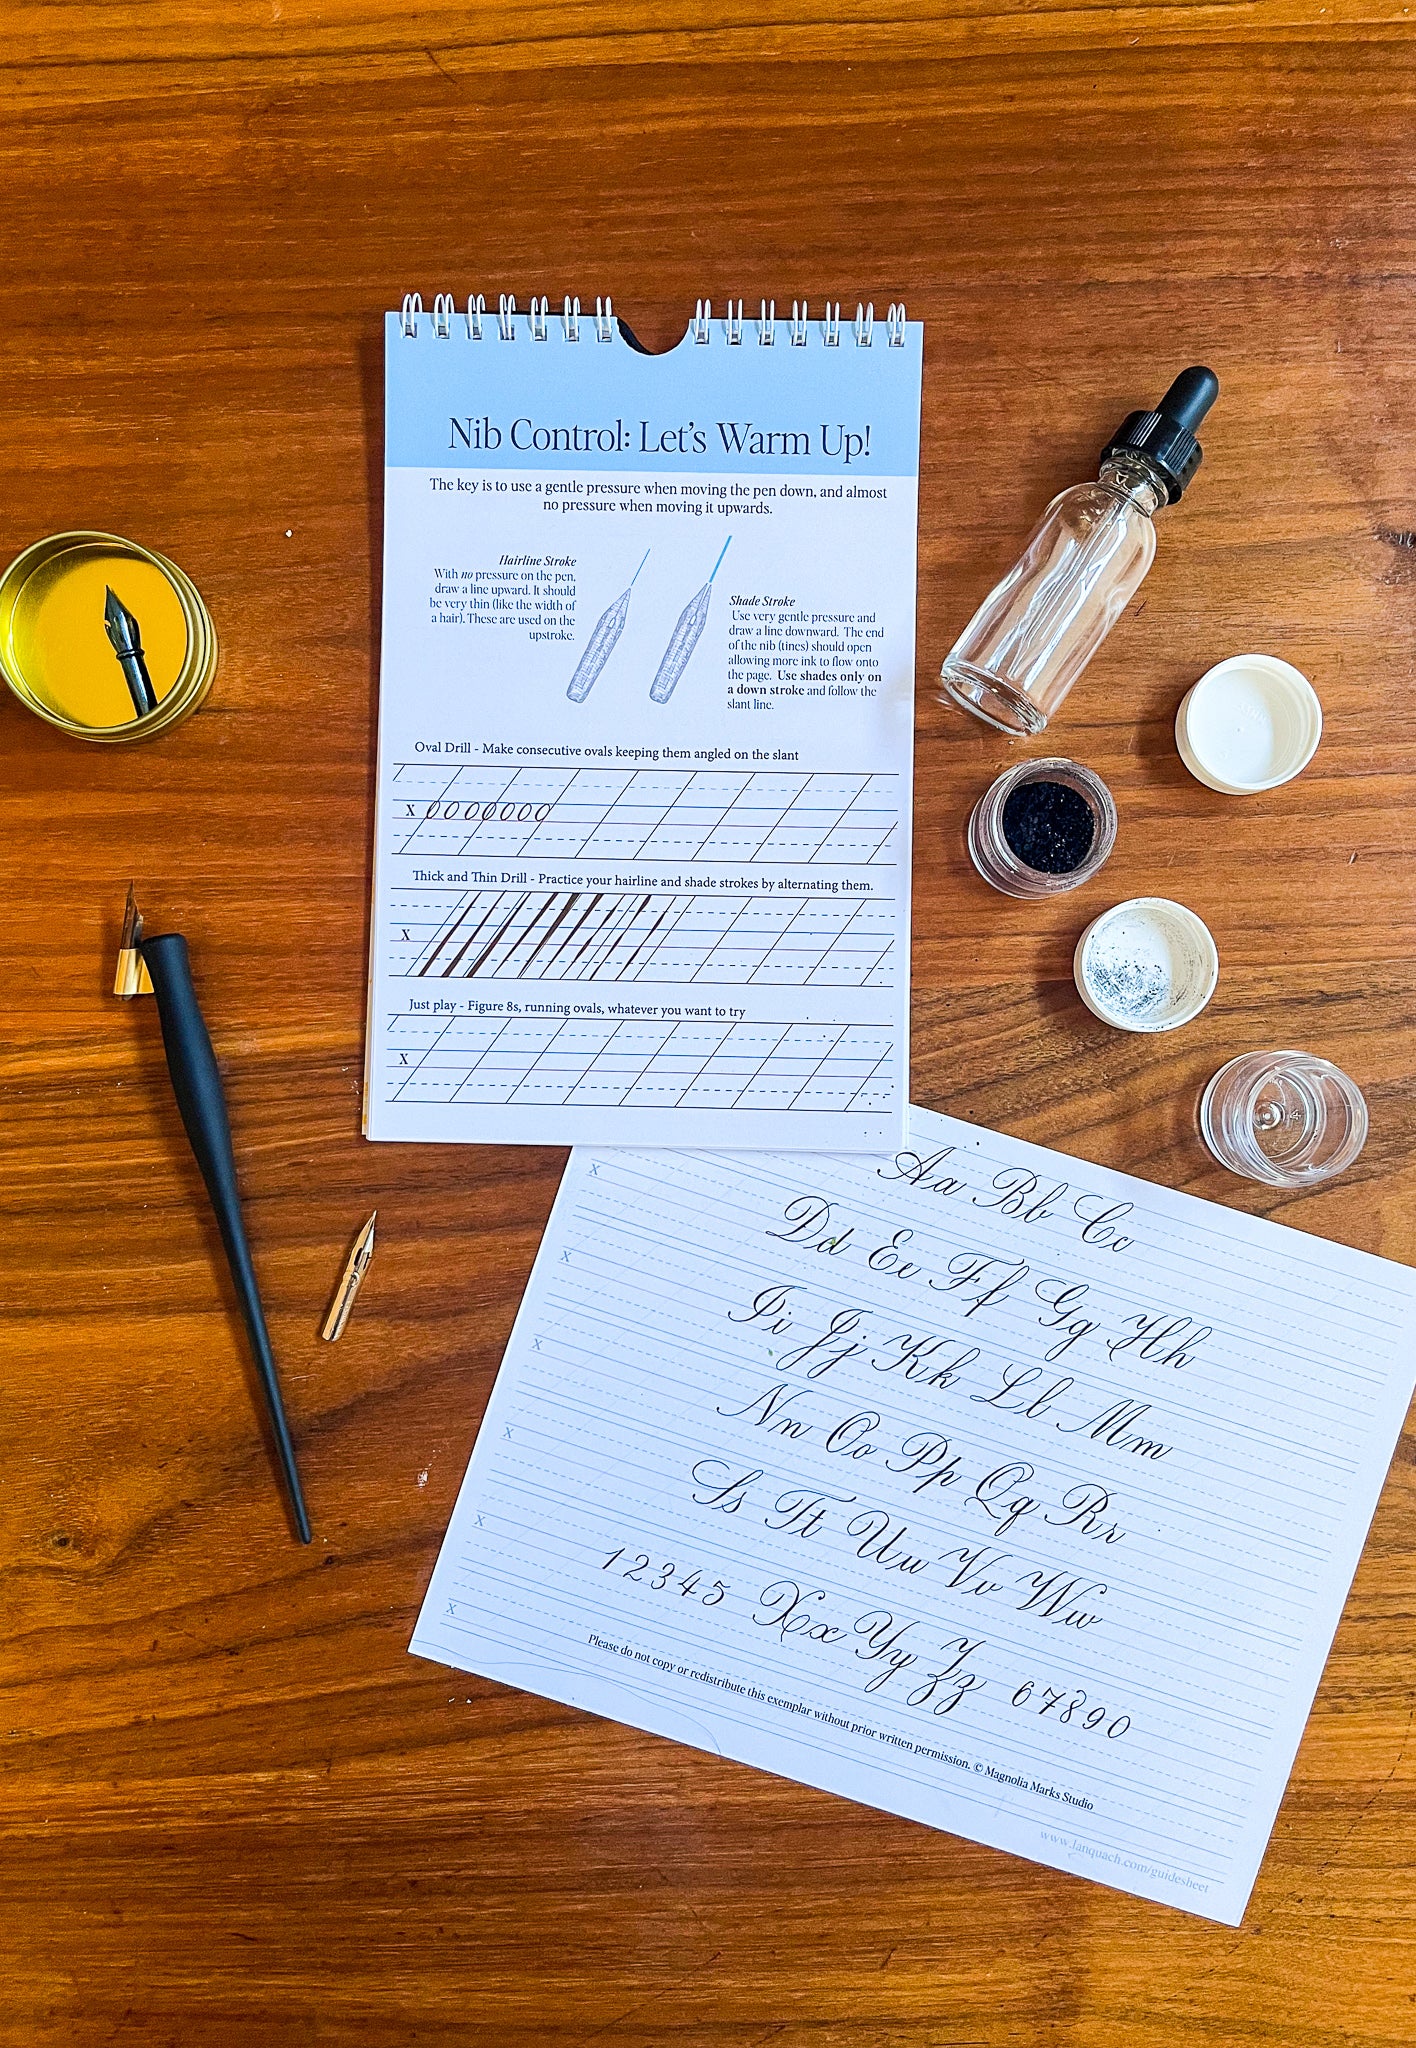 Nib Control: Let's Warm Up!
The key is to use a gentle pressure when moving the pen down, and almost
no pressure when moving it upwards.
Hairline Stroke
With no pressure on the pen,
draw a line upward. It should
be very thin (like the width of
a hair). These are used on the
upstroke.
Shade Stroke
Use very gentle pressure and
draw a line downward. The end
of the nib (tines) should open
allowing more ink to flow onto
the page. Use shades only on
a down stroke and follow the
slant line.
Oval Drill - Make consecutive ovals keeping them angled on the slant
x 0000000
Thick and Thin Drill - Practice your hairline and shade strokes by alternating them.
x
Just play - Figure 8s, running ovals, whatever you want to try
x
x Aa Bb Cc
x Dd Ee Ff Gg Hh
x Ii Jj Kk Ll Mm
x Nn Oo Pp Qq Rr
x Ss Tt Uu Vv Ww
x 12345 Xx Yy Zz 67890
Please do not copy or redistribute this exemplar without prior written permission. © Magnolia Marks Studio
www.lanquach.com/guidesheet